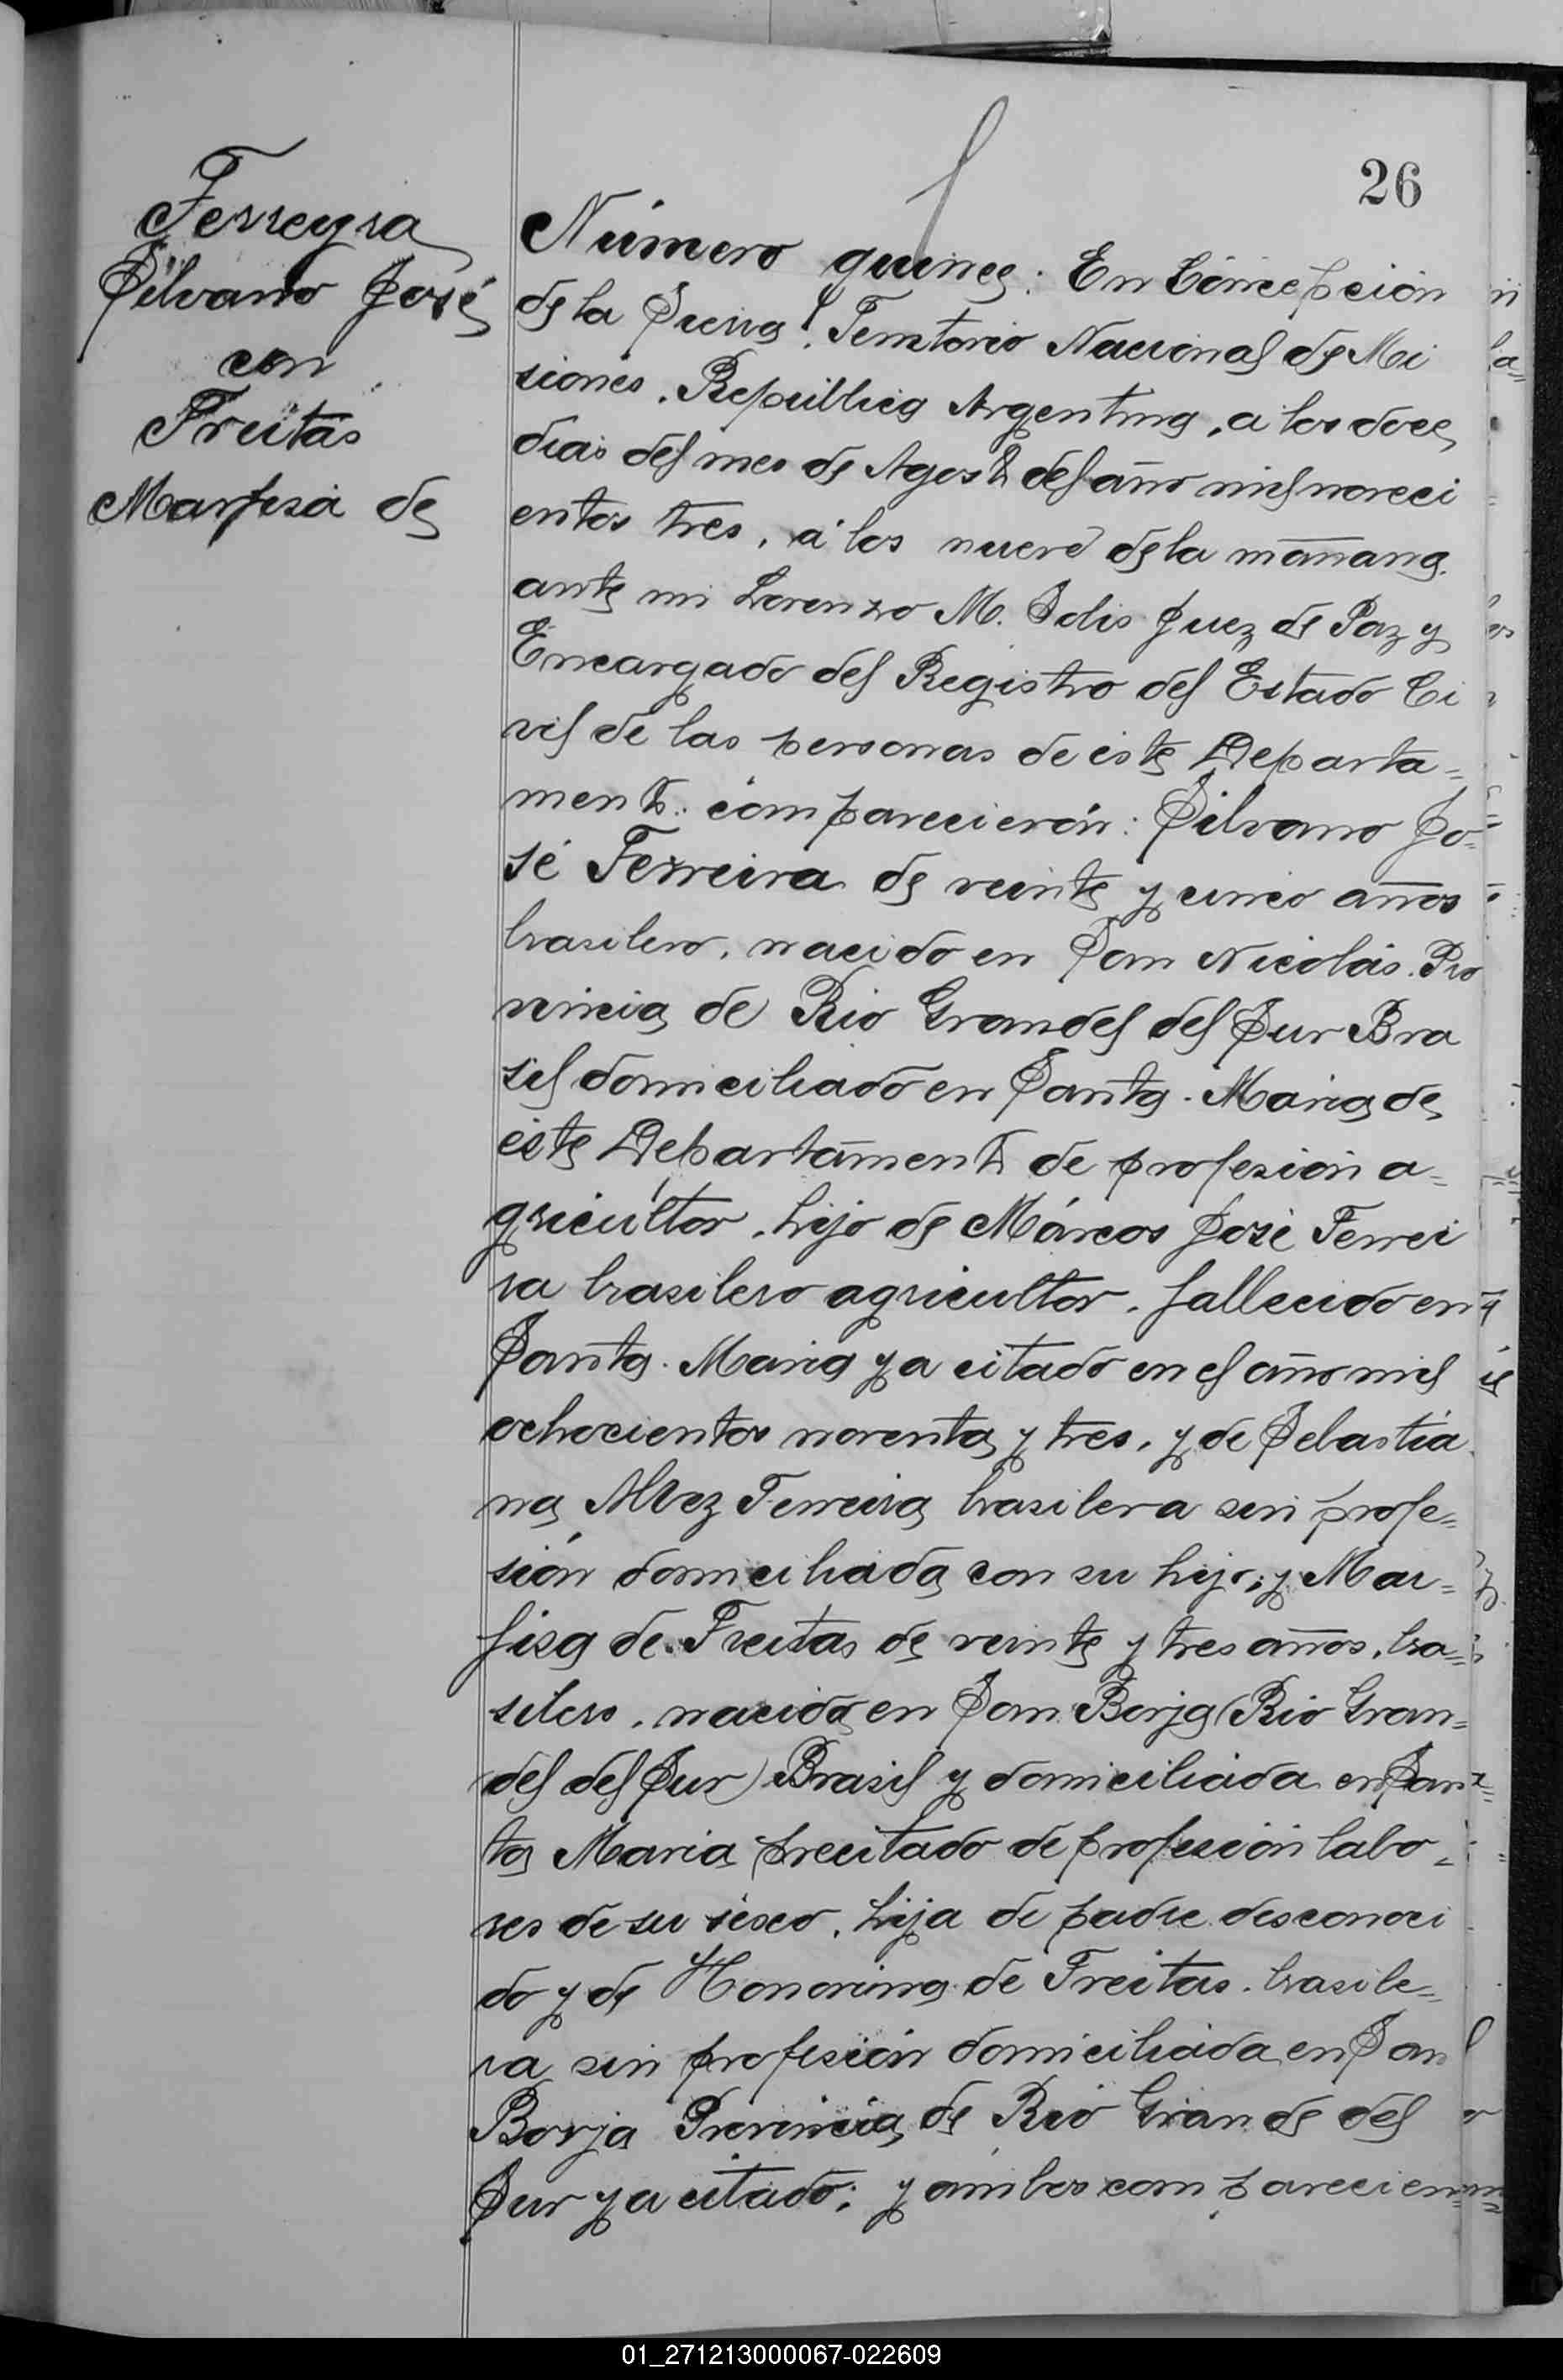 26
Ferreyra
Silvano José
con
Freitas
Marfisa de
Número quince: En Concepción
de la Sierra, Territorio Nacional de Mi
siones, República Argentina, a los doce
dias del mes de Agosto del año mil noveci
entos tres, á los nueve de la mañana,
ante mi Lorenzo M. Solis Juez de Paz y
Encargado del Registro del Estado Ci
vil de las personas de este Departa=
mento: comparecierón: Silvano Jo=
sé Ferreira de veinte y cinco años
brasilero, nacido en San Nicolás. Pro
vincia de Rio Grandel del Sur Bra
sil domiciliado en Santa. Maria de
este Departamento de profesión a=
gricultor, hijo de Márcos José Ferrei
ra brasilero agricultor, fallecido en
Santa. Maria ya citado en el año mil
ochocientos noventa y tres, y de Sebastia
na Alvez Ferreira brasilera sin profe=
sión domiciliada con su hijo; y Mar=
fisa de Freitas de veinte y tres años, bra=
silera, nacida en San Borja (Rio Gran=
del del Sur) Brasil y domiciliada en San
ta Maria precitado de profesión labo=
res de su sexo, hija de padre desconoci
do y de Honorina de Freitas, brasile=
ra sin profesión domiciliada en San
Borja Provincia de Rio Grande del
Sur ya citado; y ambos comparecien=
01_271213000067-022609